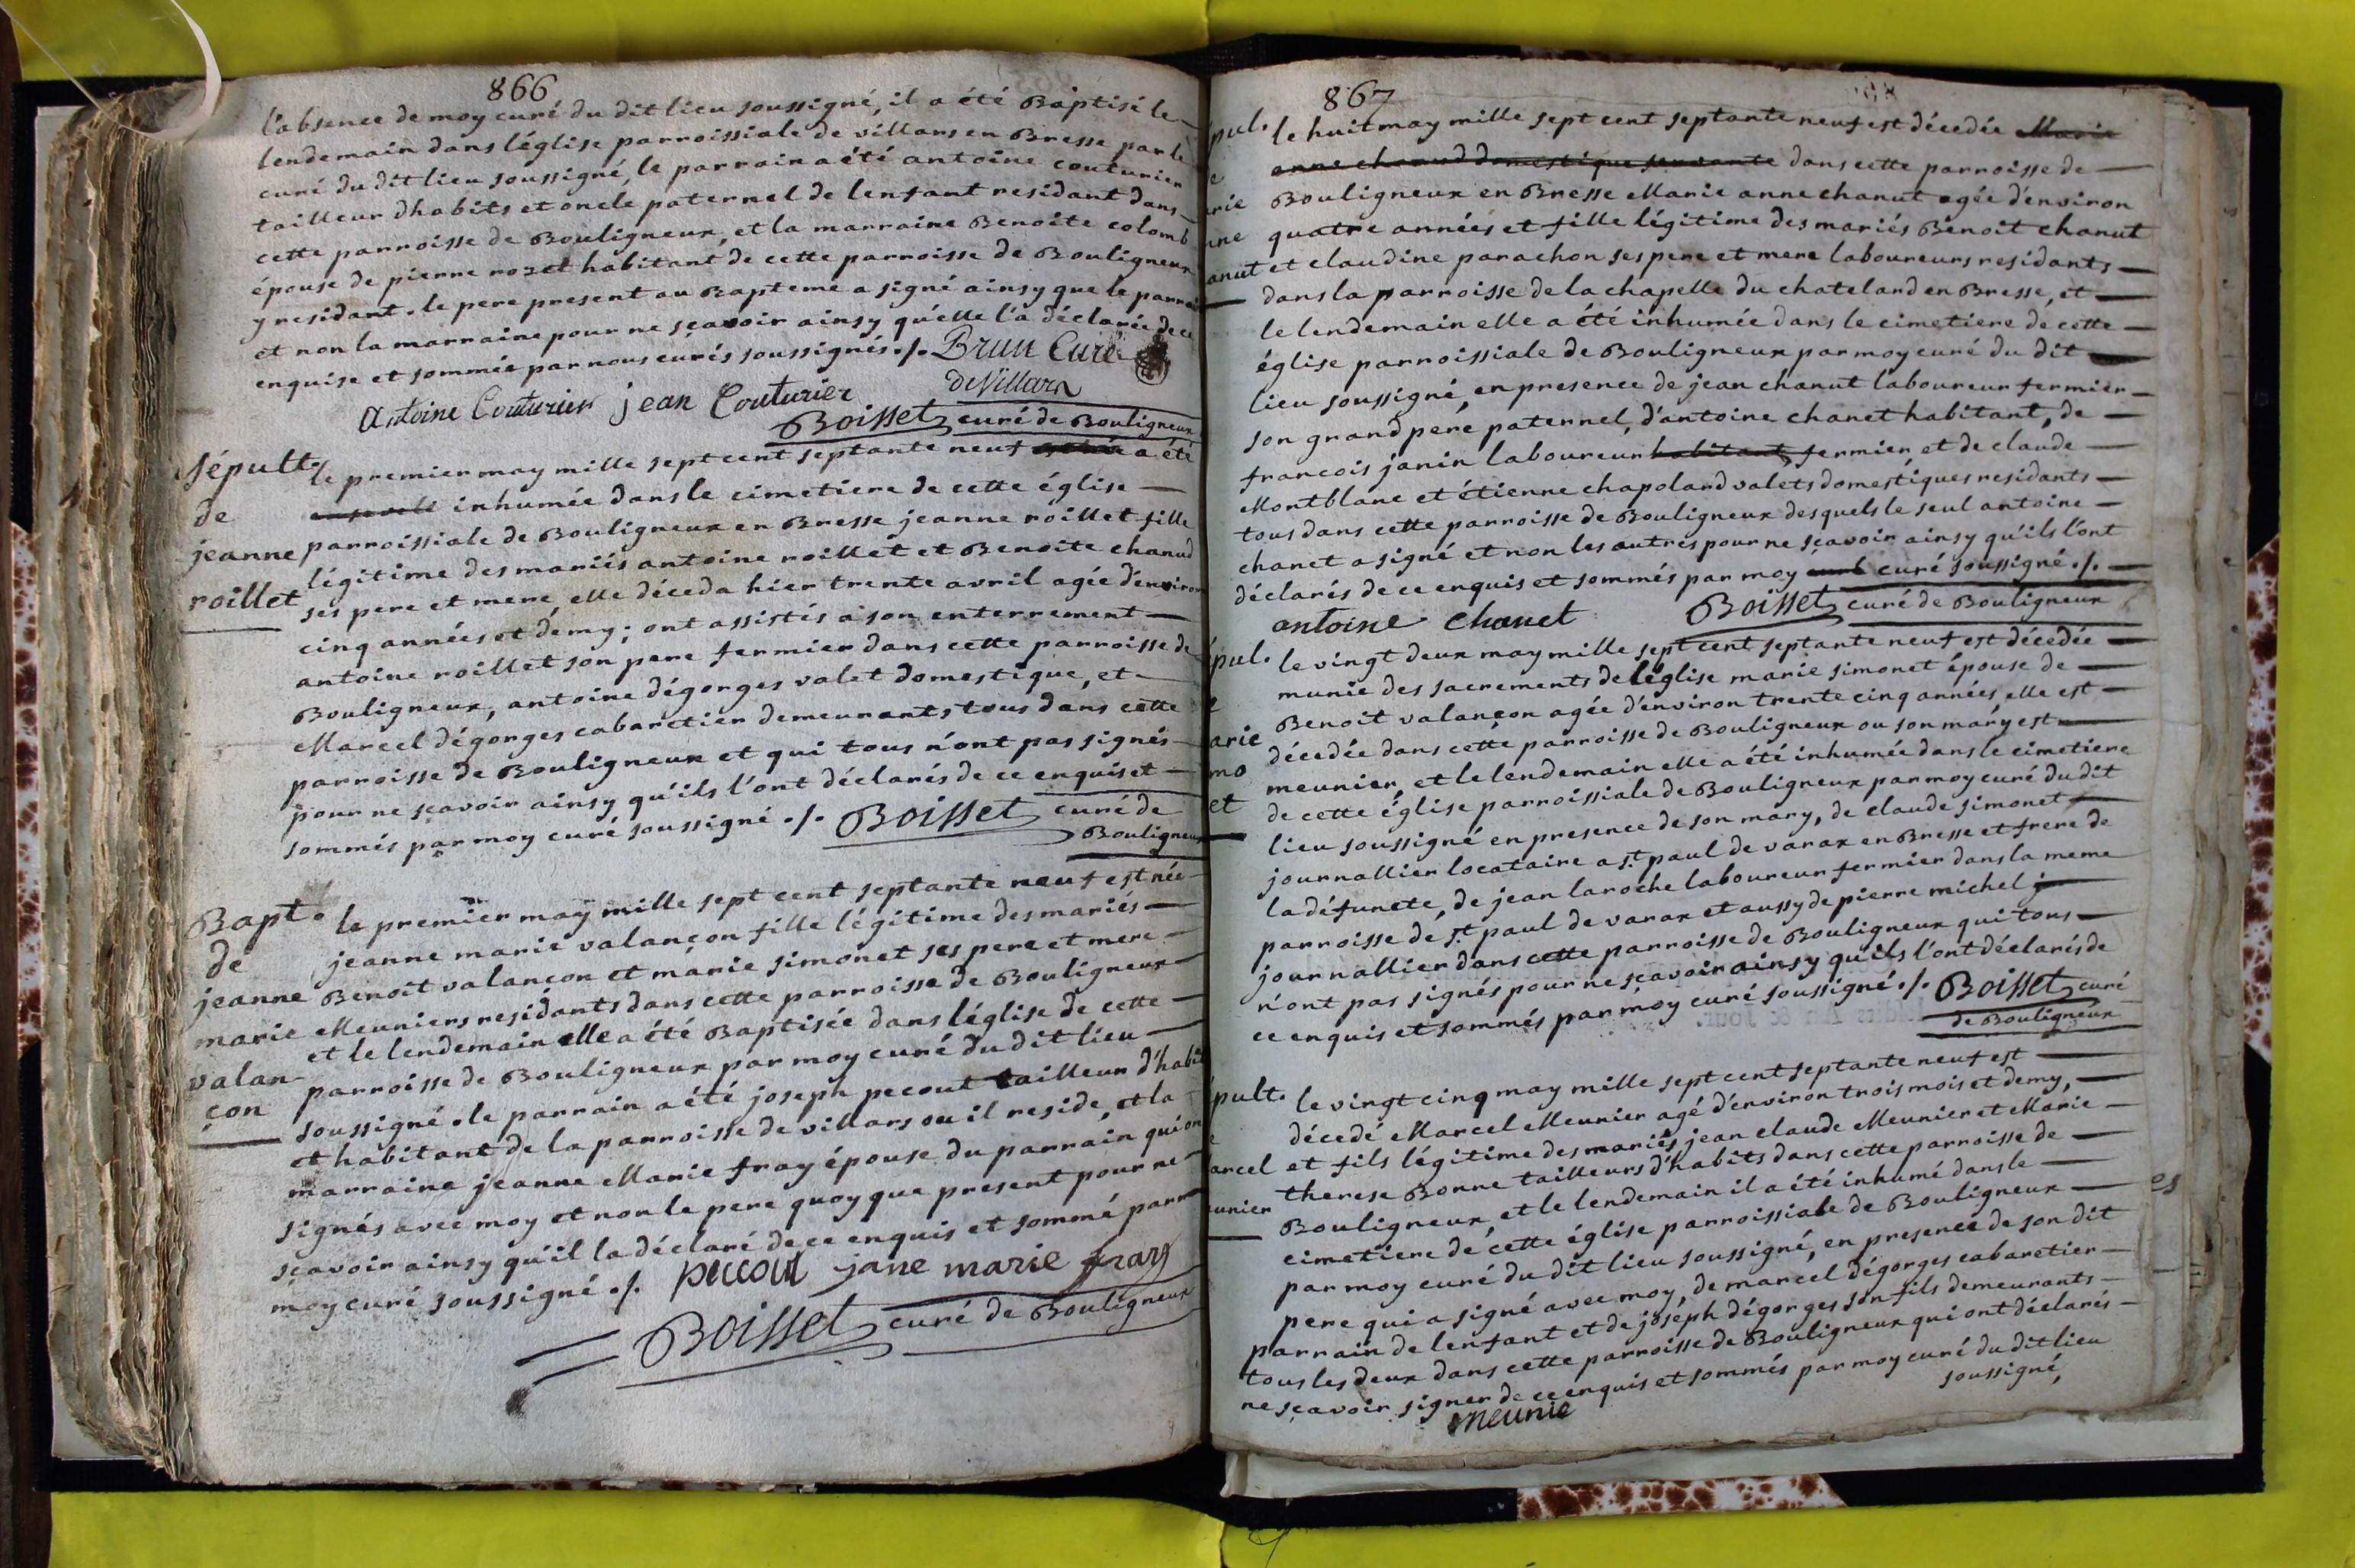 866
l'absence de moy curé du dit lieu soussigné, il a été Baptisé le
lendemain dans léglise parroissiale de villars en Bresse par le
curé du dit lieu soussigné, le parrain a été antoine couturier
tailleur dhabits et oncle paternel de lenfant residant dans
cette parroisse de Bouligneux, et la marraine Benoite colomb
épouse de pierre rozet habitant de cette parroisse de Bouligneux
y residant. le pere present au Bapteme a signé ainsy que le parrai
et non la marraine pour ne sçavoir ainsy qu'elle l'a déclarée de ce
enquise et sommée par nous curés soussignés ./. Brun Curé
de Villars
Antoine Couturier jean Couturier
Boisset curé de Bouligneux
Sépult. le premier may mille sept cent septante neuf a été
de inhumée dans le cimetiere de cette église
jeanne parroissiale de Bouligneux en Bresse jeanne roillet fille
roillet légitime des mariés antoine roillet et Benoite chanud
ses pere et mere, elle déceda hier trente avril agée d'environ
cinq années et demy; ont assistés a son enterrement
antoine roillet son pere fermier dans cette parroisse de
Bouligneux, antoine dégorges valet domestique, et
Marcel dégorges cabaretier demeurants tous dans cette
parroisse de Bouligneux et qui tous n'ont pas signés
pour ne sçavoir ainsy qu'ils l'ont déclarés de ce enquis et
sommés par moy curé soussigné ./. Boisset curé de
Bouligneux
Bapt. le premier may mille sept cent septante neuf est née
de jeanne marie valançon fille légitime des mariés
jeanne Benoit valançon et marie simonet ses pere et mere
marie Meuniers residants dans cette parroisse de Bouligneux
valan et le lendemain elle a été Baptisée dans léglise de cette
çon parroisse de Bouligneux par moy curé du dit lieu
soussigné. le parrain a été joseph pecout tailleur d'habit
et habitant de la parroisse de villars ou il reside, et la
marraine jeanne Marie fray épouse du parrain qui on
signés avec moy et non le pere quoy que present pour ne
sçavoir ainsy qu'il la déclaré de ce enquis et sommé par
moy curé soussigné ./. peccout jane marie fray
Boisset curé de Bouligneux
867
pul. le huit may mille sept cent septante neuf est décedée Marie
e anne chanud domestique servante dans cette parroisse de
arie Bouligneux en Bresse Marie anne chanut agée d'environ
nne quatre années et fille légitime des mariés Benoit chanut
anut et claudine parachon ses pere et mere laboureurs residants
dans la parroisse de la chapelle du chateland en Bresse, et
le lendemain elle a été inhumée dans le cimetiere de cette
église parroissiale de Bouligneux par moy curé du dit
lieu soussigné, en presence de jean chanut laboureur fermier
son grand pere paternel, d'antoine chanet habitant, de
francois janin laboureur habitant fermier, et de claude
Montblanc et étienne chapoland valets domestiques residants
tous dans cette parroisse de Bouligneux desquels le seul antoine
chanet a signé et non les autres pour ne sçavoir ainsy qu'ils l'ont
déclarés de ce enquis et sommés par moy curé soussigné ./.
antoine Chanet Boisset curé de Bouligneux
pul. le vingt deux may mille sept cent septante neuf est décedée
munie des sacrements de léglise marie simonet épouse de
e Benoit valançon agée d'environ trente cinq années, elle est
arie décedée dans cette parroisse de Bouligneux ou son mary est
mo meunier, et le lendemain elle a été inhumée dans le cimetiere
et de cette église parroissiale de Bouligneux par moy curé du dit
lieu soussigné en presence de son mary, de claude simonet
journallier locataire a st. paul de varax en Bresse et frere de
la défuncte, de jean laroche laboureur fermier dans la meme
parroisse de st. paul de varax et aussy de pierre michel
journallier dans cette parroisse de Bouligneux qui tous
n'ont pas signés pour ne sçavoir ainsy qu'ils l'ont déclarés de
ce enquis et sommés par moy curé soussigné ./. Boisset curé
de Bouligneux
pult. le vingt cinq may mille sept cent septante neuf est
e décedé Marcel Meunier agé d'environ trois mois et demy,
arcel et fils légitime des mariés jean claude Meunier et Marie
unier therese Bonne tailleurs d'habits dans cette parroisse de
Bouligneux, et le lendemain il a été inhumé dans le
cimetiere de cette église parroissiale de Bouligneux
par moy curé du dit lieu soussigné, en presence de son dit
pere qui a signé avec moy, de marcel dégorges cabaretier
parrain de lenfant et de joseph dégorges son fils demeurants
tous les deux dans cette parroisse de Bouligneux qui ont déclarés
ne sçavoir signer de ce enquis et sommés par moy curé du dit lieu
soussigné,
meunie